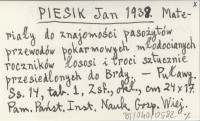 PIESIK Jan 1938. Mate-
riały do znajomości pasożytów
przewodów pokarmowych młodocianych
roczników łososi i troci sztucznie
przesiedlonych do Brdy. – Puławy.
Ss. 14, tab. 1, Zsf., okł., cm 24 x 17.
Pam. Państ. Inst. Nauk. Gosp. Wiej.